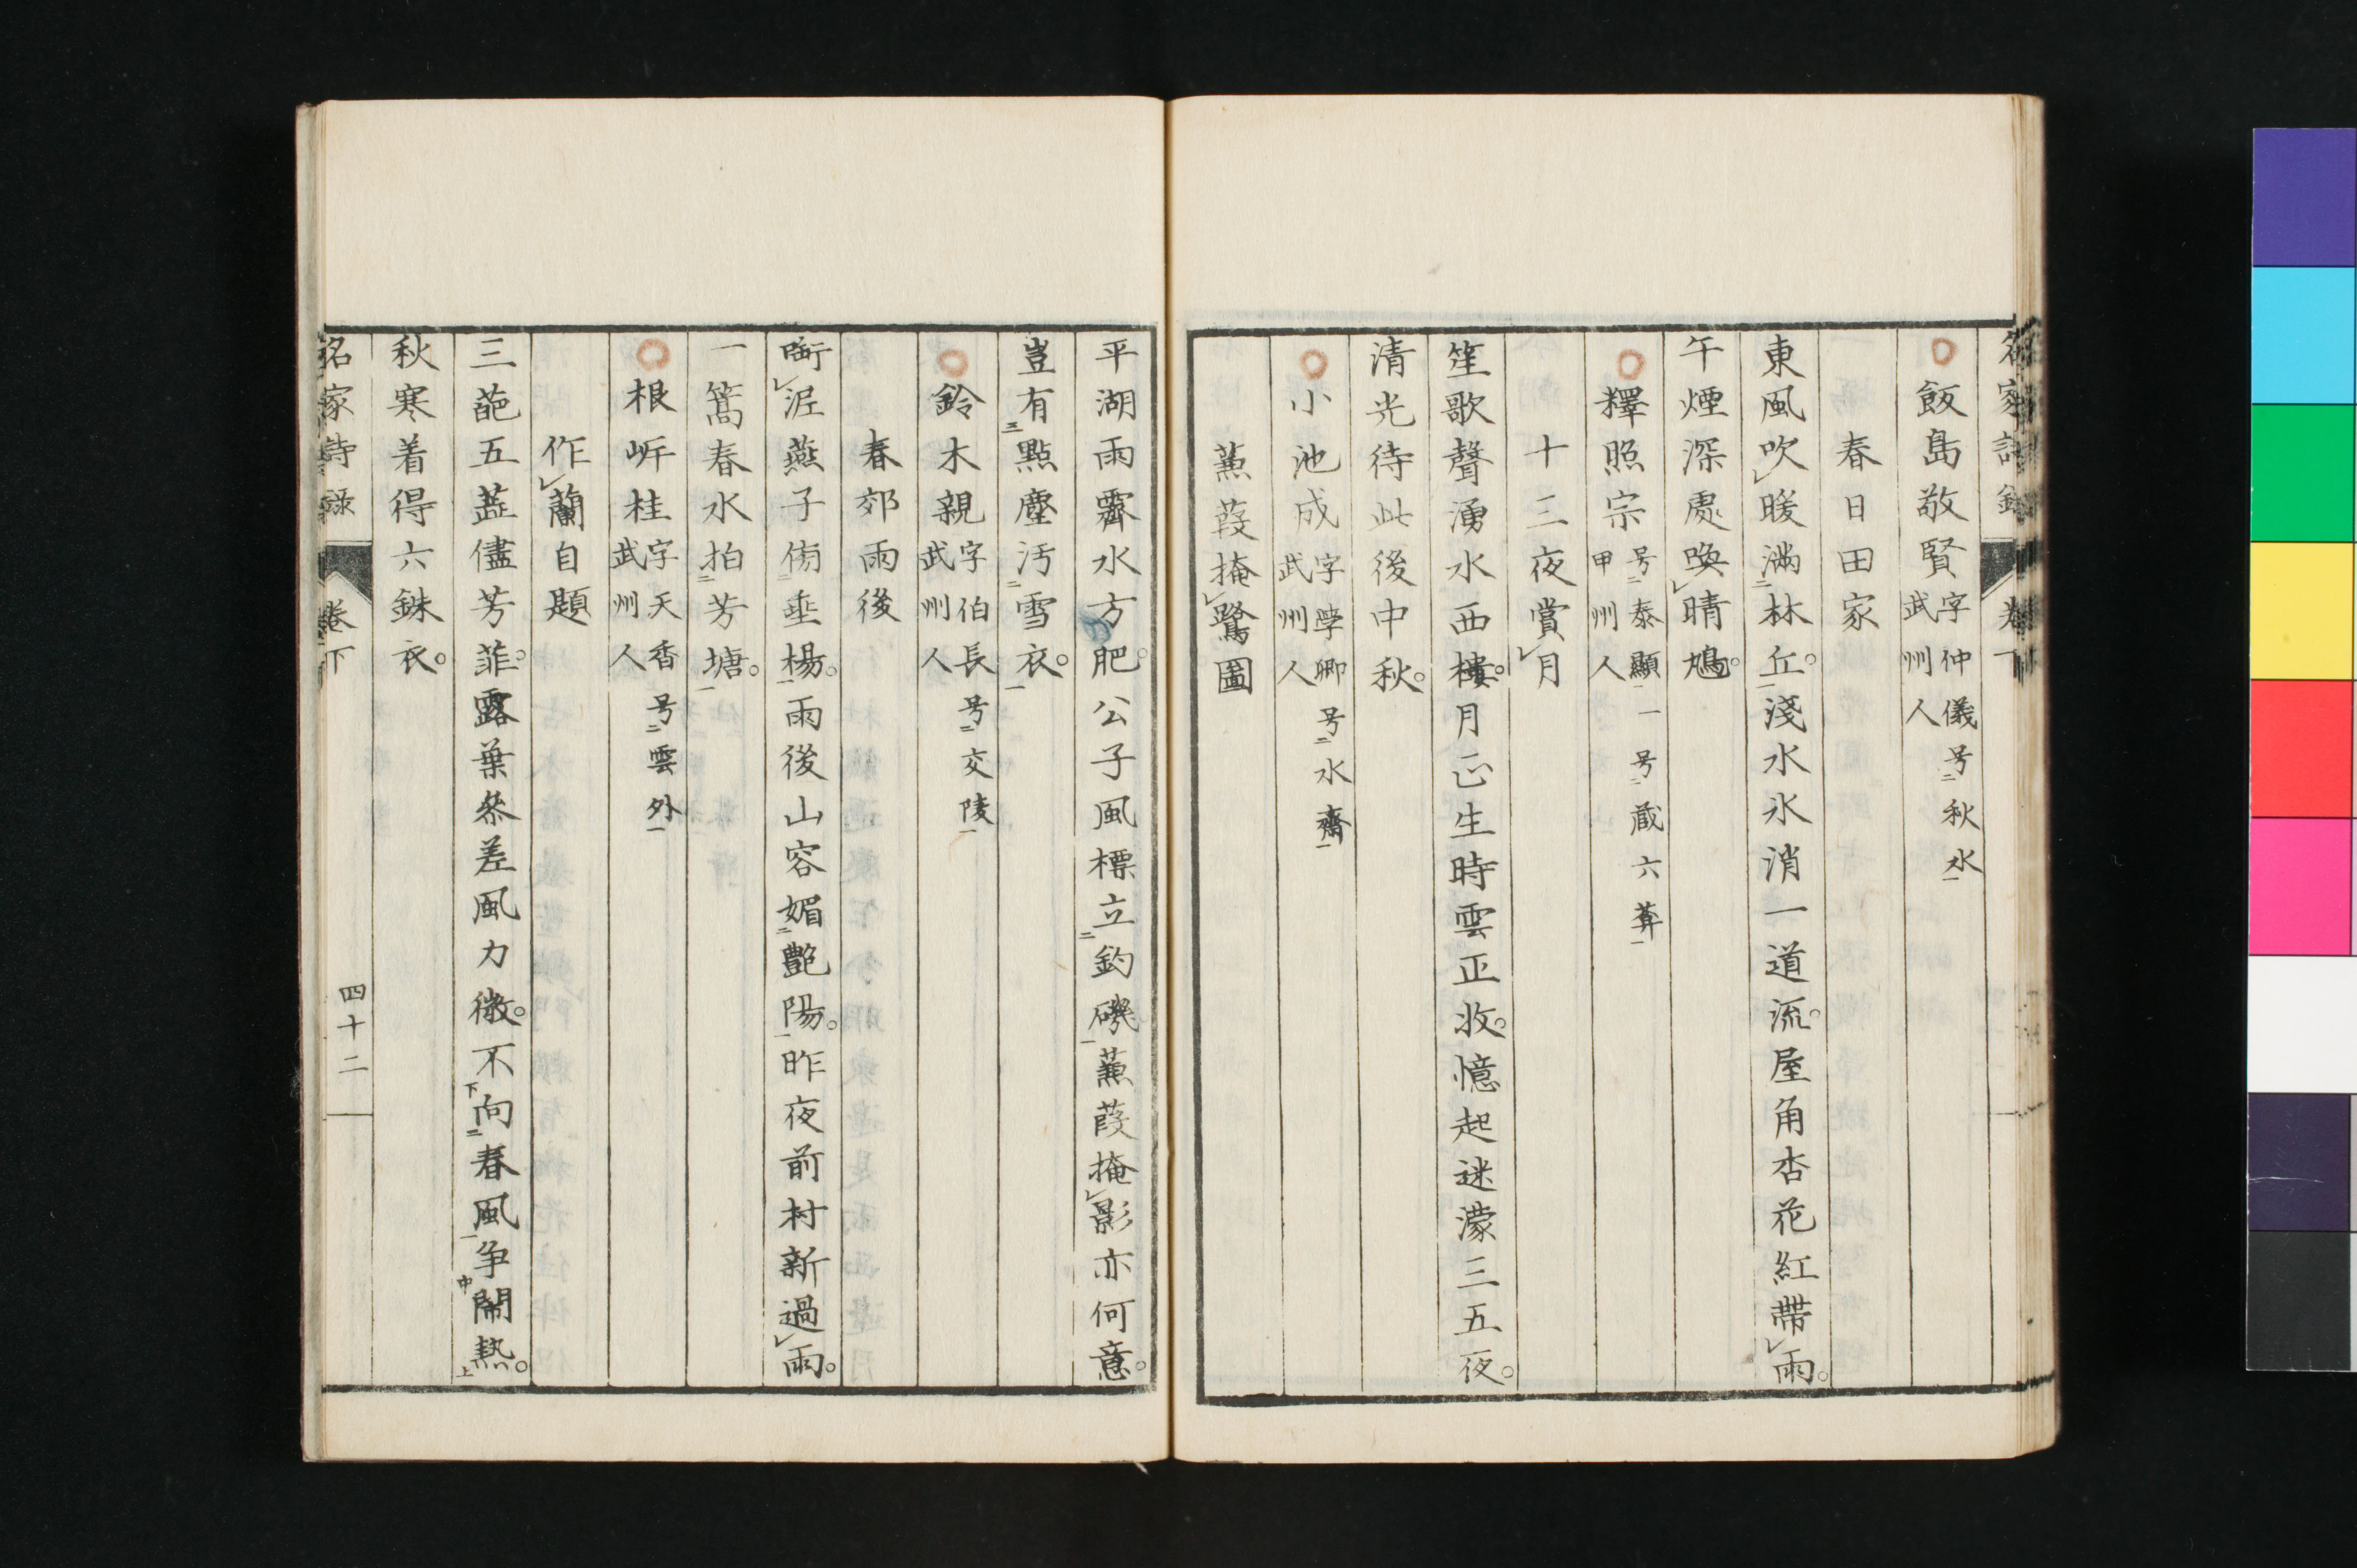 飯島敬賢 字仲儀号秋水 武州人
春日田家
東風吹暖滿林丘。淺水氷消一道流。屋角杏花紅帶雨。
午煙深處喚晴鳩。
釋照宗 号泰顯一号蔵六葊 甲州人
十三夜賞月
笙歌聲湧水西樓。月正生時雲正收。憶起迷濛三五夜。
清光待此後中秋。
小池成 字學卿号水齋 武州人
蒹葭掩鷺圖
平湖雨霽水方肥。公子風標立釣磯。蒹葭掩影亦何意。
豈有點塵汚雪衣。
鈴木親 字伯長号交陵 武州人
春郊雨後
啣泥燕子侑垂楊。雨後山容媚艷陽。昨夜前村新過雨。
一篙春水拍芳塘。
根岸桂 字天香号雲外 武州人
作蘭自題
三葩五蕋儘芳菲。露葉叅差風力微。不向春風争鬧熱。
秋寒着得六銖衣。
名家詩録 卷下 四十二